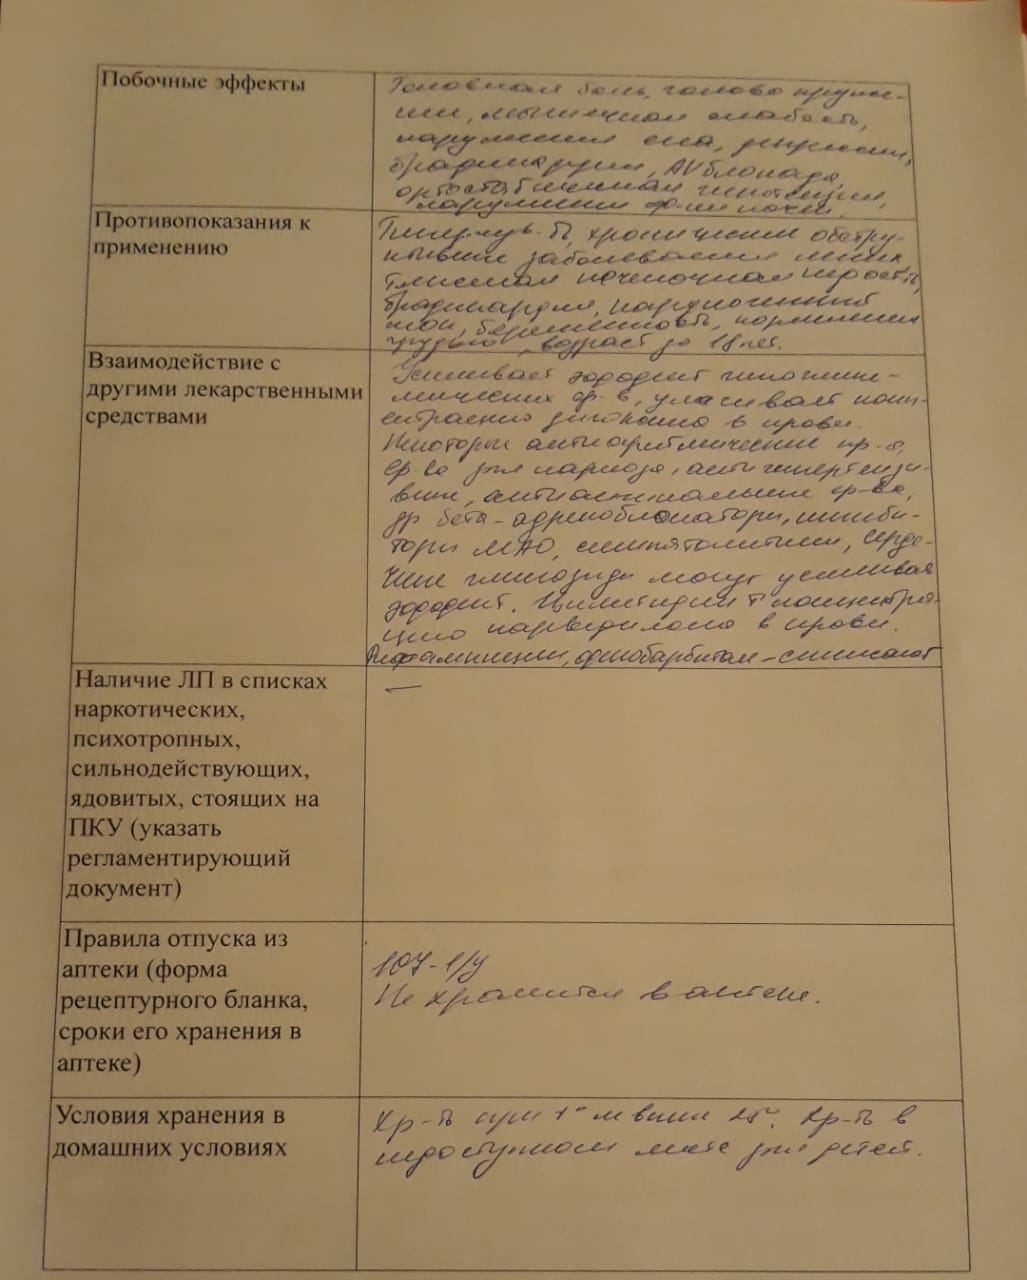 Побочные эффекты
Головная боль, голово круже-
ние, мышечная слабость,
нарушения сна, депрессии,
брадикардии, AV блокада,
ортостатическая гипотензия,
нарушение ф-ии почек.
Противопоказания к
применению
Гиперчув-ть, хронические обстру-
ктивные заболевания легких
тяжелая печеночная недост-ть,
брадикардия, кардиогенный
шок, беременность, кормление
грудью, возраст до 18 лет.
Взаимодействие с
другими лекарственными
средствами
Усиливает эффект гипоглике-
мических ср-в, увеличивает конц-
ентрацию дигоксина в крови.
Некоторые антиаритмические пр-ты,
ср-ва для наркоза, антигипертензи-
вные, антиангинальные ср-ва,
др бета-адреноблокаторы, ингиби-
торы МАО, симпатолитики, серде-
чные гликозиды могут усиливая
эффект. Циметидин ↑ концентра-
цию карведилола в крови.
Рифампицин, фенобарбитал - снижают
Наличие ЛП в списках
наркотических,
психотропных,
сильнодействующих,
ядовитых, стоящих на
ПКУ (указать
регламентирующий
документ)
—
Правила отпуска из
аптеки (форма
рецептурного бланка,
сроки его хранения в
аптеке)
107-1/у
Не хранится в аптеке.
Условия хранения в
домашних условиях
Хр-ть при t° не выше 25°. Хр-ть в
недоступном месте для детей.